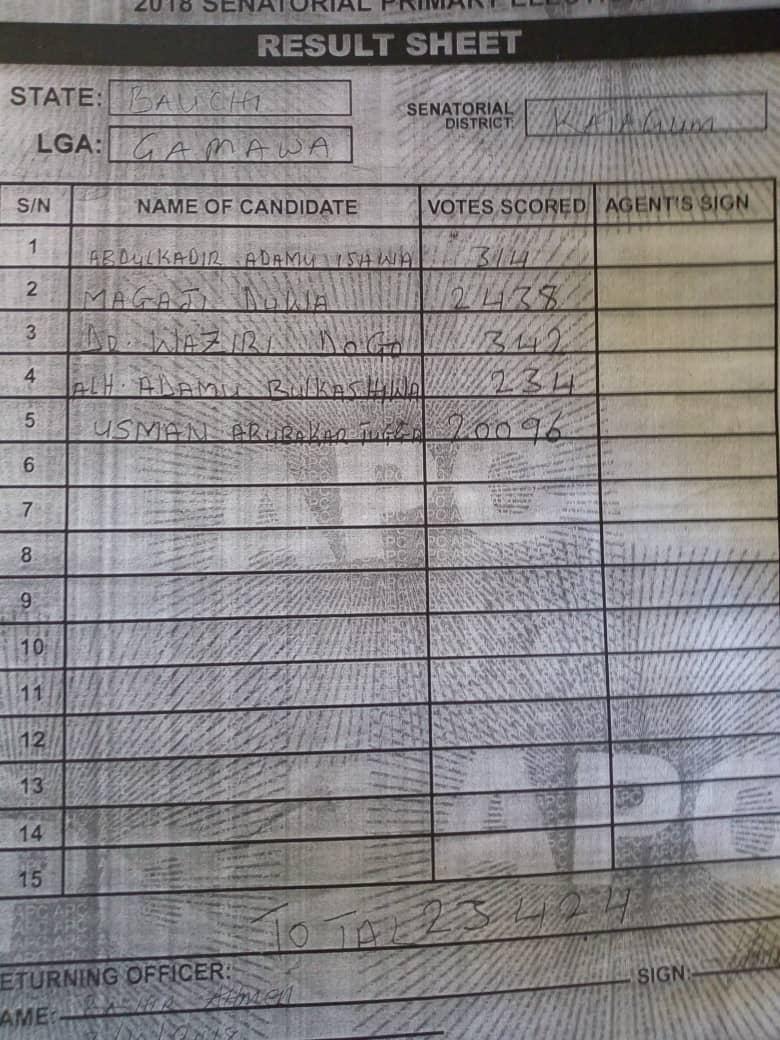 2018 SENATORIAL PRIMARY
RESULT SHEET
STATE: BAUCHI
SENATORIAL DISTRICT:
LGA: GAMAWA
S/N NAME OF CANDIDATE VOTES SCORED AGENT'S SIGN
1 ABDULKADIR ADAMU ISAWA 314
2 MAGAJI DUWA 2438
3 DR. WAZIRI DOGO 342
4 ALH. ADAMU BULKASHIWA 234
5 USMAN ABUBAKAR TUGGA 20096
6
7
8
9
10
11
12
13
14
15
TOTAL 23424
ETURNING OFFICER:
AME: SIGN: